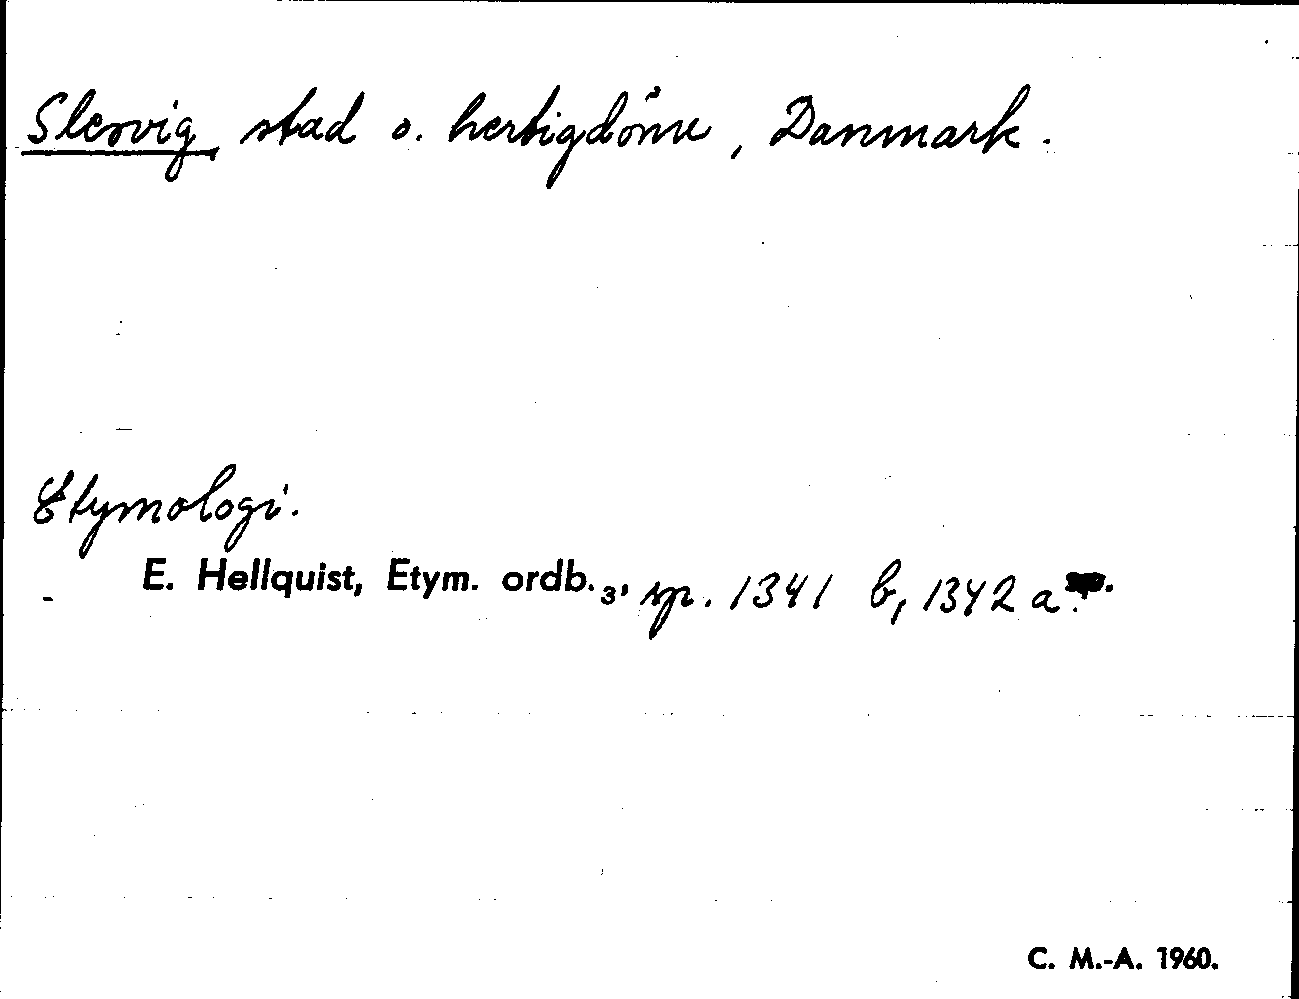 Slesvig, stad o. hertigdöme, Danmark.
Etymologi.
E. Hellquist, Etym. ordb.₃, sp. 1341 b, 1342 a.
C. M.-A. 1960.